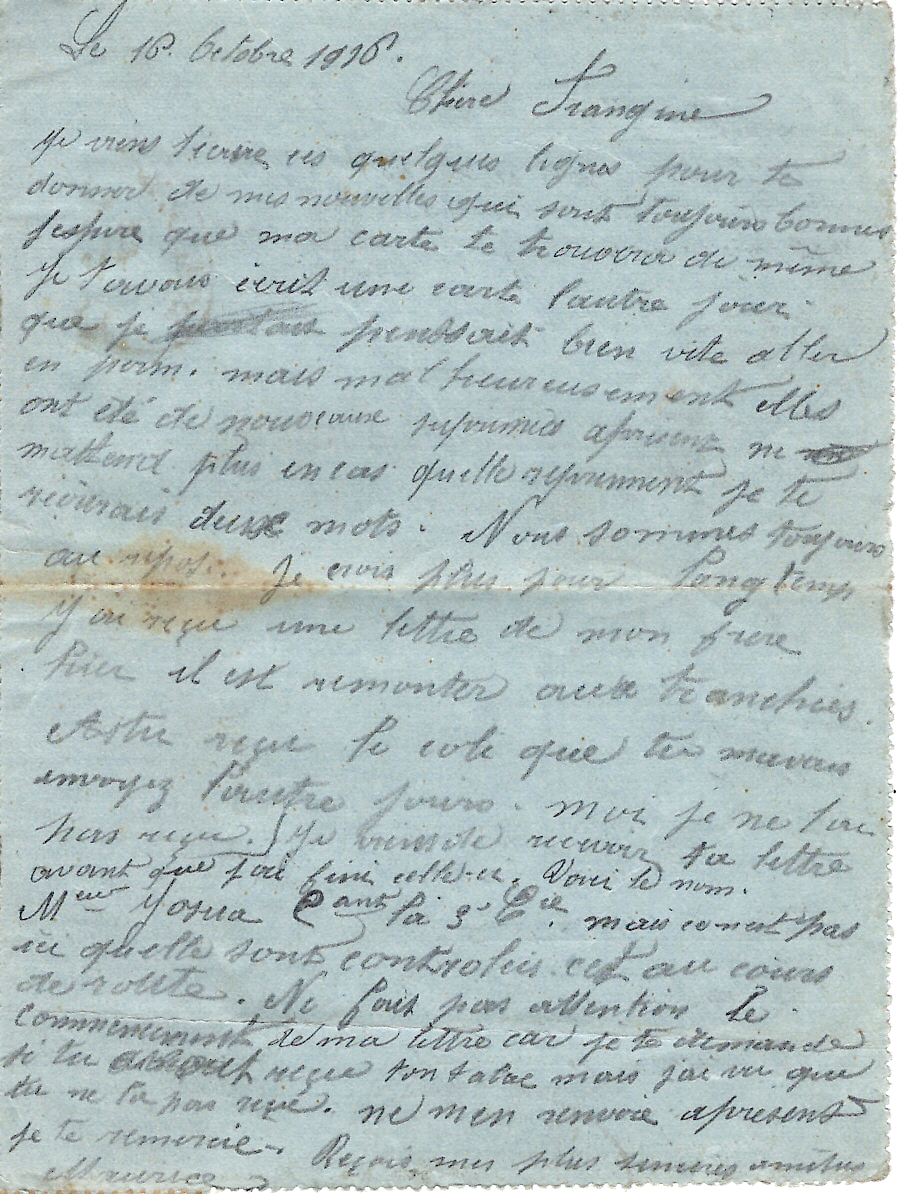 Le 16. Octobre 1916.
Chère Frangine
Je viens t'ecrire ces quelques lignes pour te
donner de mes nouvelles qui sont toujours bonnes
J'espère que ma carte te trouvera de même
Je t'avais écrit une carte l'autre jour
que je pendsait bien vite aller
en perm. mais malheureusement elles
ont été de nouveaux suprimés apresent ne
mattend plus en cas quelle reprennent je te
récrirais deux mots. Nous sommes toujours
au repos. Je crois plus pour longtemps
J'ai reçue une lettre de mon frère
hier il est remonter aux tranchées.
Astu reçu le coli que tu mavais
envoyez l'autre jours. moi je ne l'ai
pas reçu. Je viens de recevoir ta lettre
avant que j'ai fini celle-ci. Voici le nom.
Meur Cant la 3e Cie. mais ce nest pas
ici quelle sont controleis cest au cours
de route. Ne fait pas attention le
commencement de ma lettre car je te demande
si tu reçue ton tabac mais j'ai vu que
tu ne l'a pas reçu. ne men renvoie apresent
je te remercie. Reçois mes plus sincères amitiés
Maurice